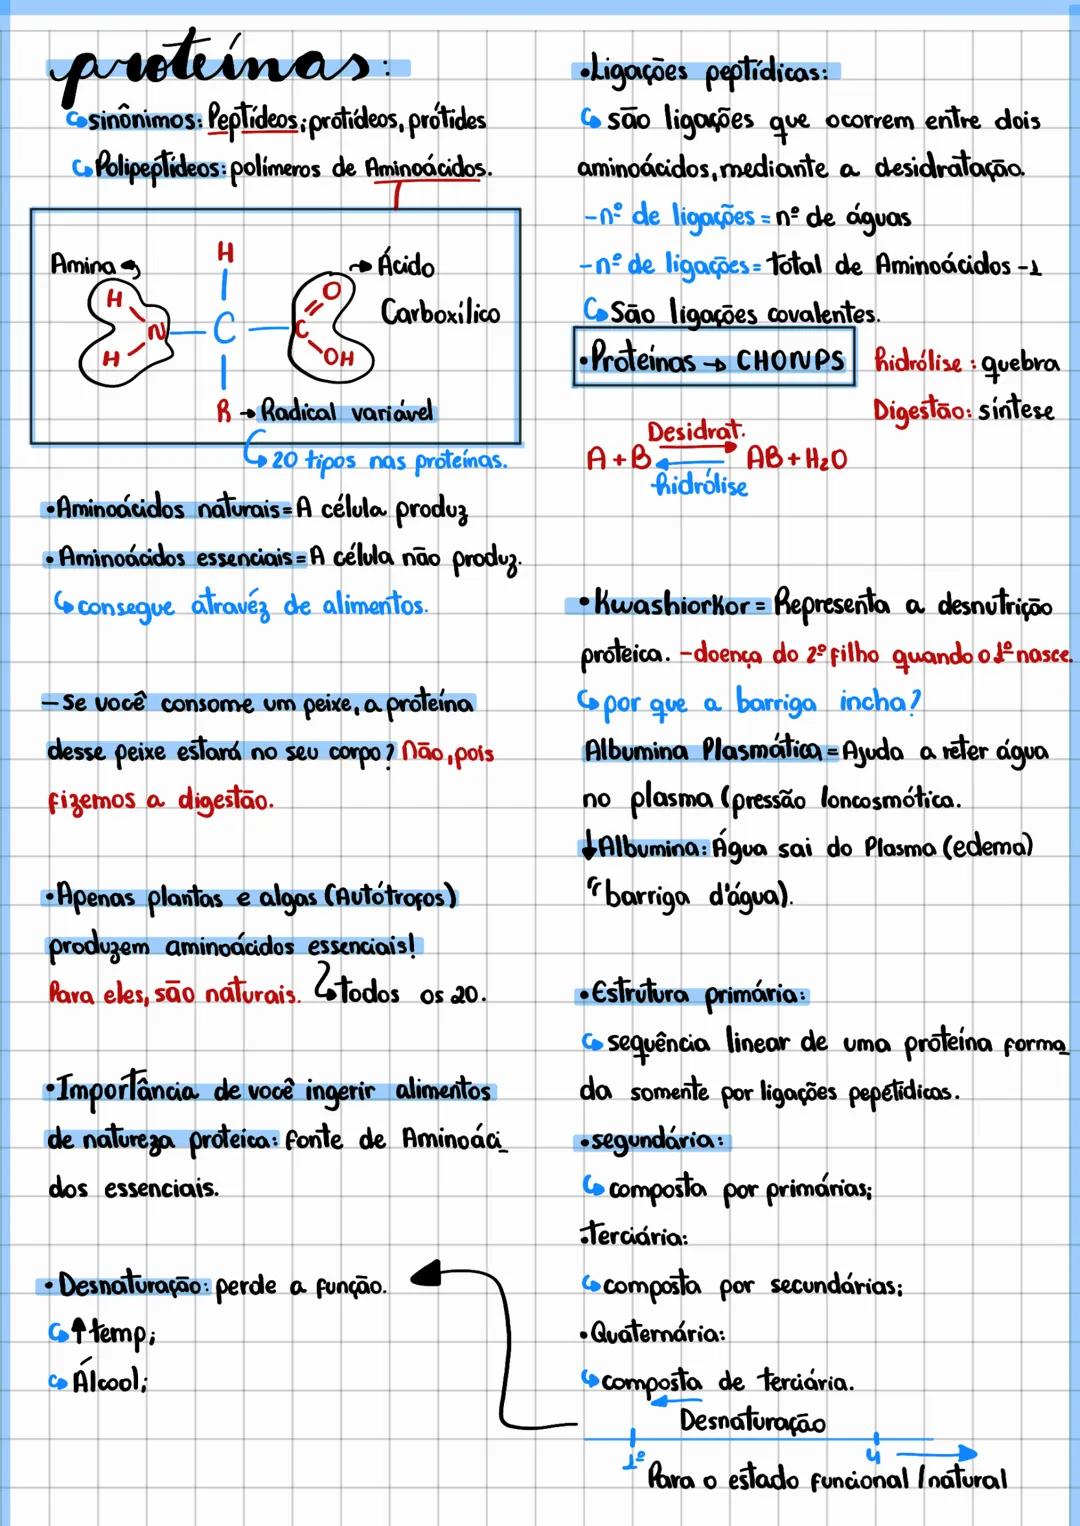 proteínas:
sinônimos: Peptídeos; protídeos, prótides
Polipeptídeos: polímeros de Aminoácidos.
Amina
H
Ácido
Carboxílico
H
N
H
C
C
O
OH
R → Radical variável
20 tipos nas proteínas.
•Aminoácidos naturais = A célula produz
•Aminoácidos essenciais = A célula não produz.
consegue atravéz de alimentos.
- Se você consome um peixe, a proteína
desse peixe estará no seu corpo? Não, pois
fizemos a digestão.
•Apenas plantas e algas (Autótrofos)
produzem aminoácidos essenciais!
Para eles, são naturais. todos os 20.
•Importância de você ingerir alimentos
de natureza proteica: fonte de Aminoáci_
dos essenciais.
•Desnaturação: perde a função.
↑temp;
Álcool;
•Ligações peptídicas:
são ligações que ocorrem entre dois
aminoácidos, mediante a desidratação.
-nº de ligações = nº de águas
-nº de ligações = total de Aminoácidos -1
São ligações covalentes.
•Proteínas → CHONPS
hidrólise: quebra
Digestão: síntese
Desidrat.
A + B → AB + H₂O
hidrólise
•Kwashiorkor = Representa a desnutrição
proteica. -doença do 2º filho quando o 1º nasce.
por que a barriga incha?
Albumina Plasmática = Ajuda a reter água
no plasma (pressão loncosmótica.
↓Albumina: Água sai do Plasma (edema)
"barriga d'água).
•Estrutura primária:
sequência linear de uma proteína forma_
da somente por ligações pepétidicas.
•segundária:
composta por primárias;
•Terciária:
composta por secundárias;
•Quaternária:
composta de terciária.
Desnaturação
1º
4
Para o estado funcional / natural